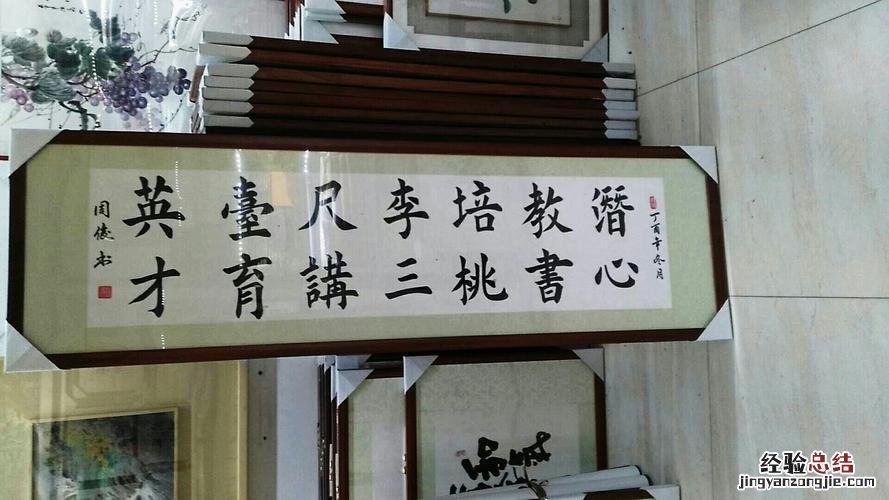 丁酉年冬月
潛心
教書
培桃
李三
尺講
臺育
英才
周俊书
经验总结
jingyanzongjie.com